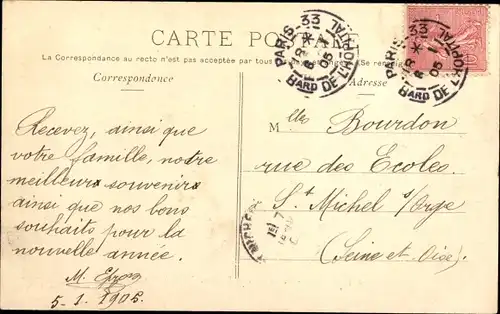 CARTE POSTALE
La Correspondance au recto n'est pas acceptée par tous
Correspondance
Adresse
PARIS-33
Bard DE L'HOPITAL
PARIS-33
Bard DE L'HOPITAL
Recevez, ainsi que
votre famille, nos
meilleurs souvenirs
ainsi que nos bons
souhaits pour la
nouvelle année.
5-1.1905.
Melles Bourdon
rue des Ecoles
St Michel s/Orge
(Seine et Oise)